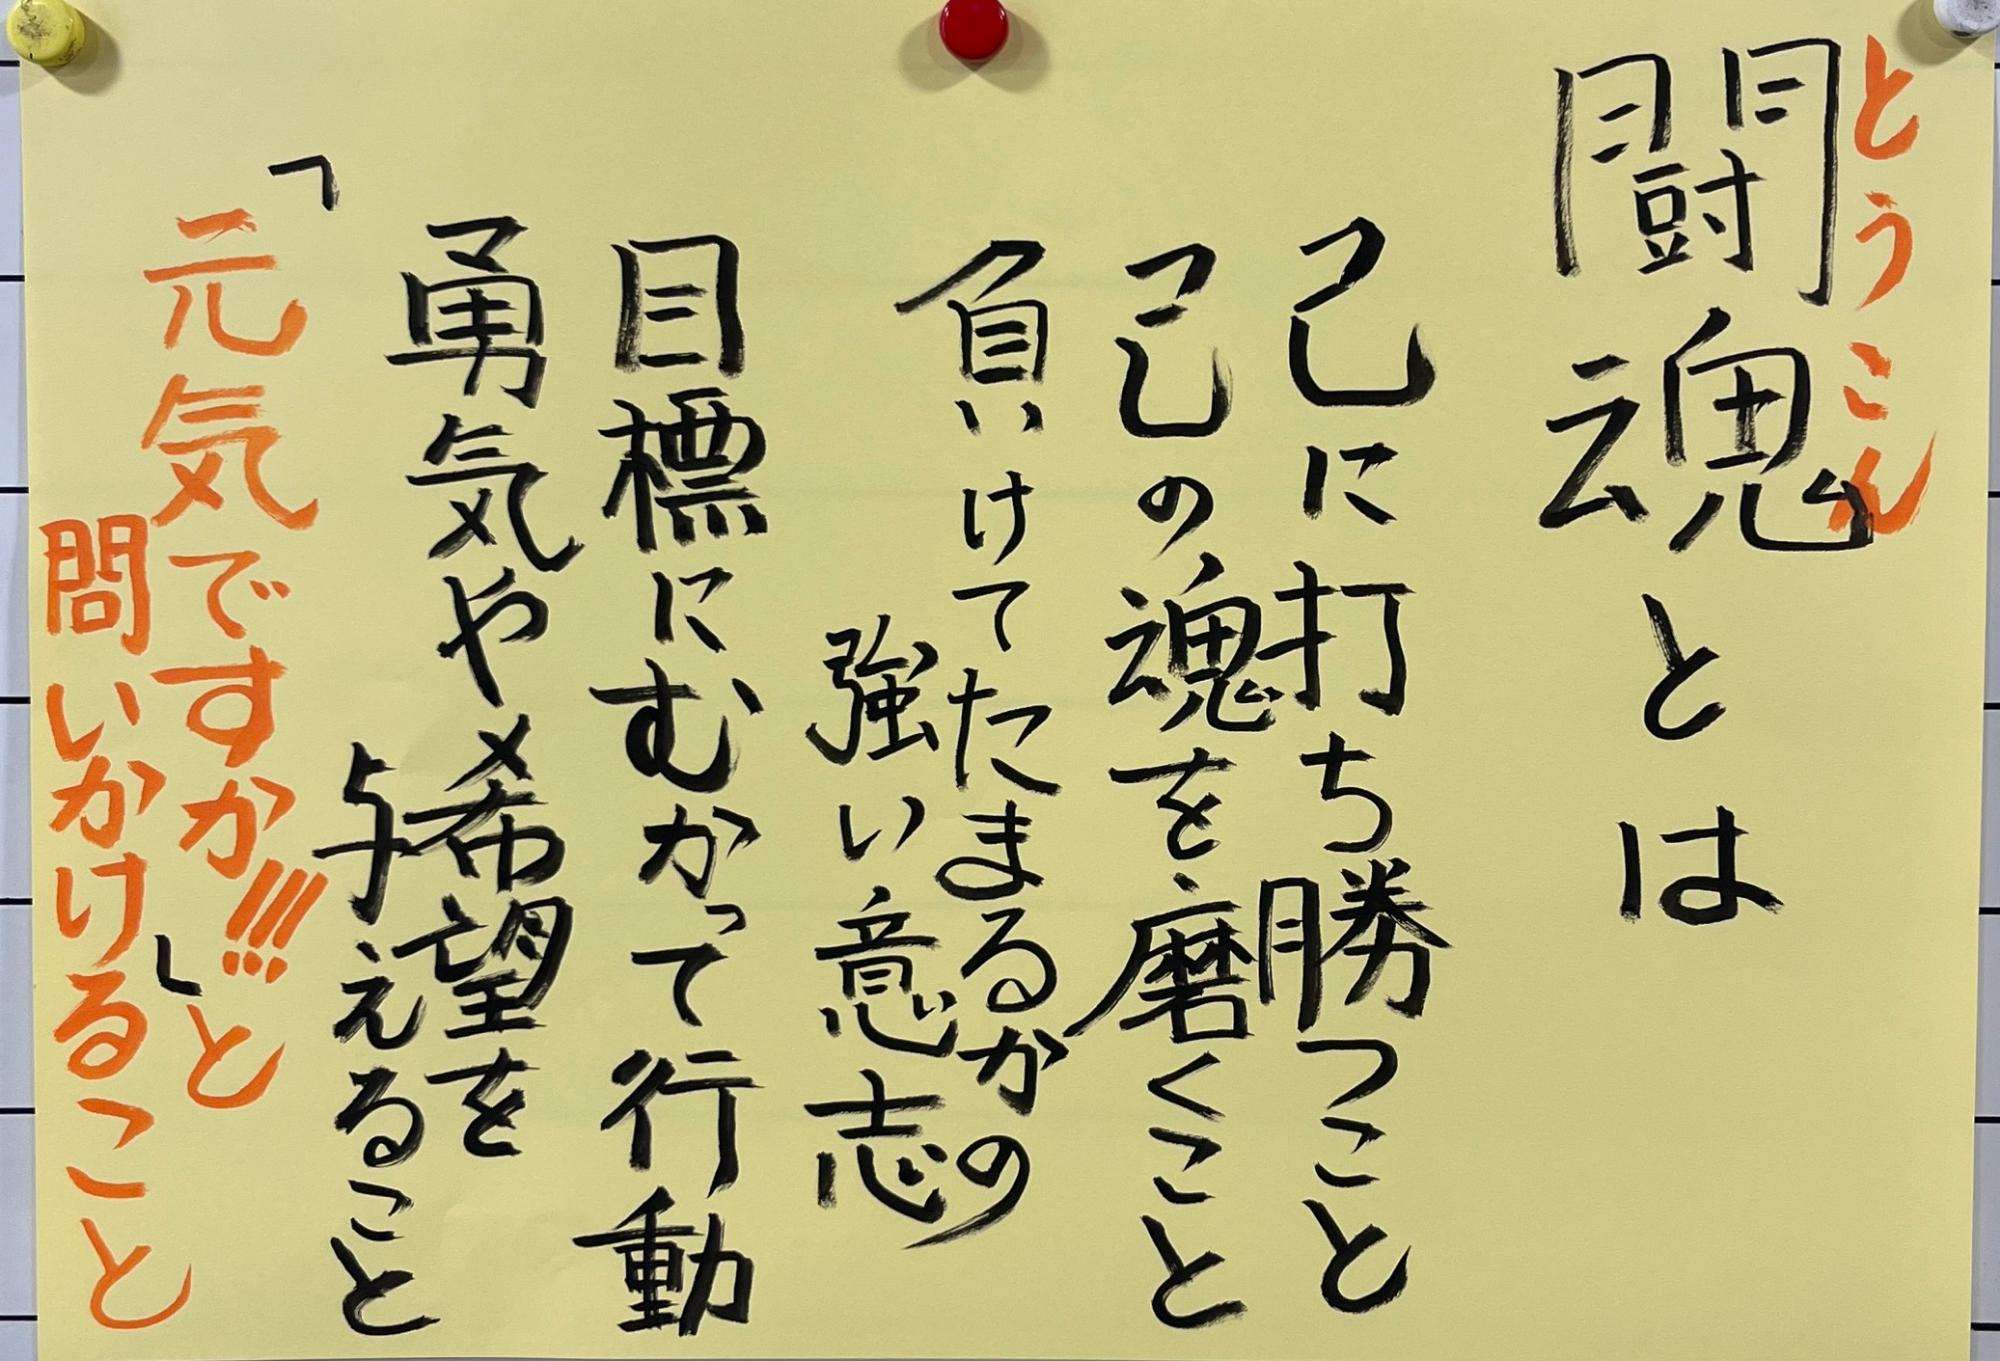 とうこん
闘魂とは
己に打ち勝つこと
己の魂を磨くこと
負いけてたまるかの
強い意志
目標にむかって行動
勇気や希望を
与えること
「元気ですか!!!」と
問いかけること